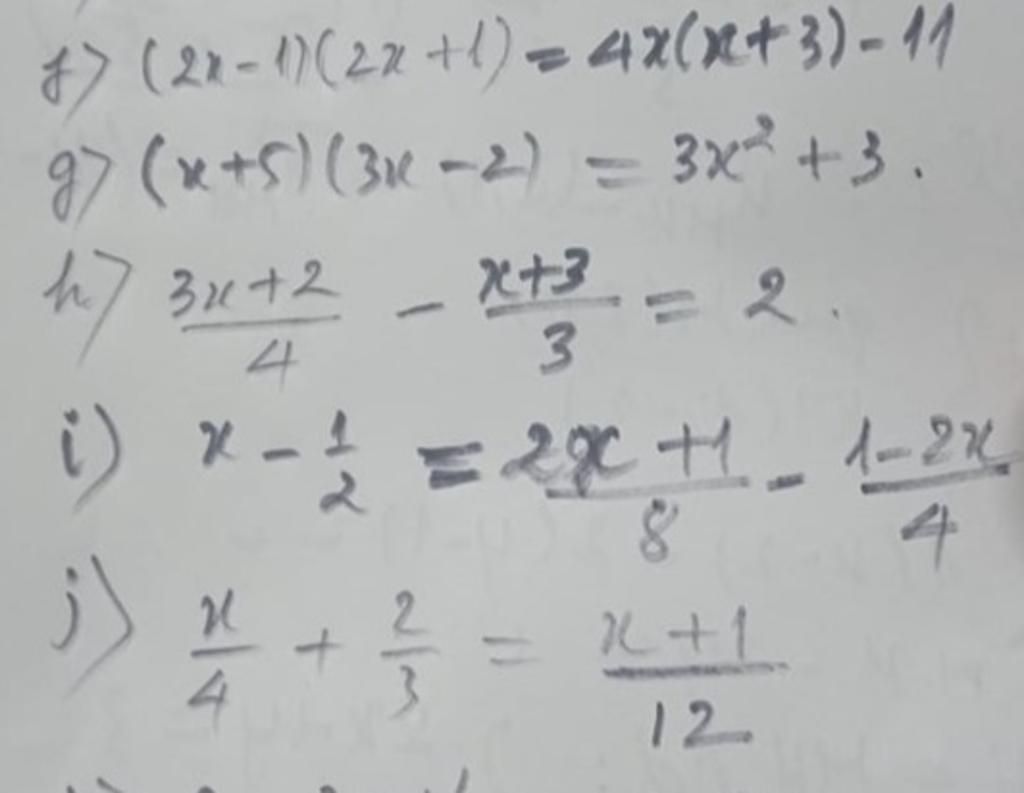 f) (2x-1)(2x+1) = 4x(x+3)-11
g) (x+5)(3x-2) = 3x² + 3.
h) \frac{3x+2}{4} - \frac{x+3}{3} = 2.
i) x - \frac{1}{2} = \frac{2x+1}{8} - \frac{1-2x}{4}
j) \frac{x}{4} + \frac{2}{3} = \frac{x+1}{12}